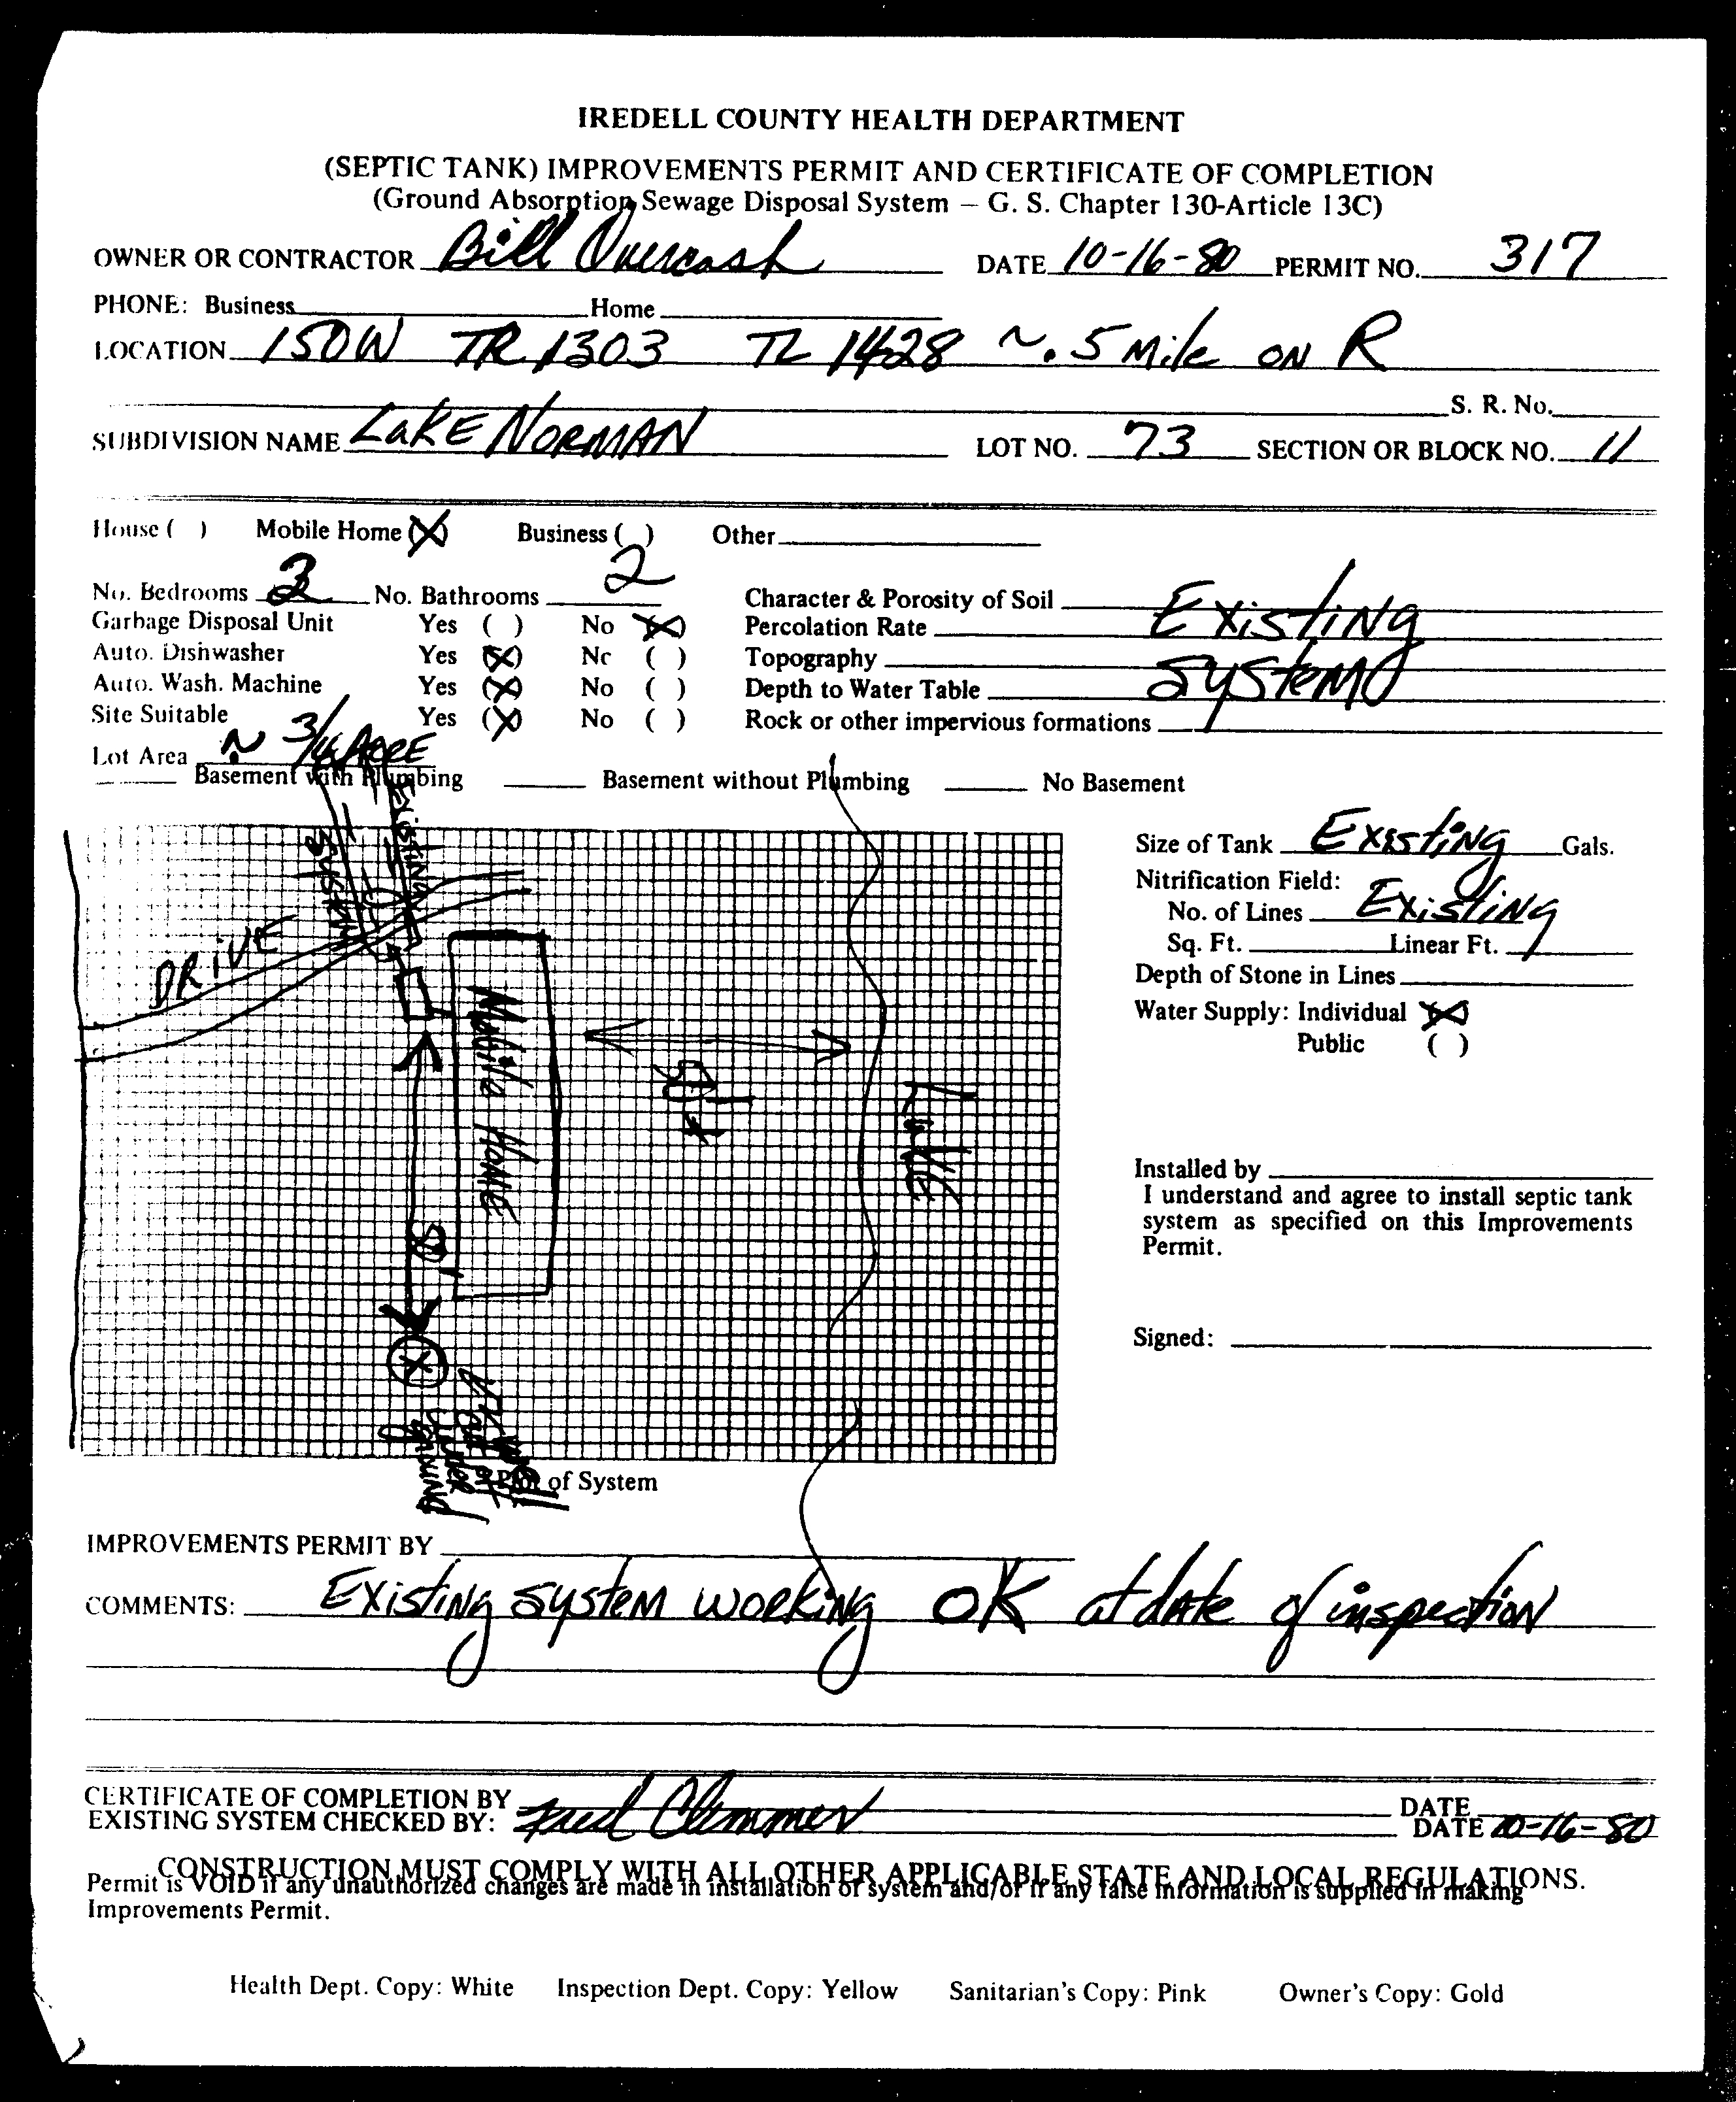 IREDELL COUNTY HEALTH DEPARTMENT
(SEPTIC TANK) IMPROVEMENTS PERMIT AND CERTIFICATE OF COMPLETION
(Ground Absorption Sewage Disposal System — G. S. Chapter 130-Article 13C)
OWNER OR CONTRACTOR Bill Overcash DATE 10-16-80 PERMIT NO. 317
PHONE: Business Home
LOCATION 150W TR 1303 TL 1428 ~ .5 Mile ON R
S. R. No.
SUBDIVISION NAME LAKE NORMAN LOT NO. 73 SECTION OR BLOCK NO. 11
House ( ) Mobile Home (X) Business ( ) Other
No. Bedrooms 3 No. Bathrooms 2 Character & Porosity of Soil Existing
Garbage Disposal Unit Yes ( ) No (X) Percolation Rate
Auto. Dishwasher Yes (X) No ( ) Topography System
Auto. Wash. Machine Yes (X) No ( ) Depth to Water Table
Site Suitable Yes (X) No ( ) Rock or other impervious formations
Lot Area ~ 3/4 ACRE
Basement with Plumbing Basement without Plumbing No Basement
Existing
System
DRIVE
Mobile Home
Lake
Well
under
ground
Plot of System
Size of Tank Existing Gals.
Nitrification Field:
No. of Lines Existing
Sq. Ft. Linear Ft.
Depth of Stone in Lines
Water Supply: Individual (X)
Public ( )
Installed by
I understand and agree to install septic tank
system as specified on this Improvements
Permit.
Signed:
IMPROVEMENTS PERMIT BY
COMMENTS: Existing system working OK at date of inspection
CERTIFICATE OF COMPLETION BY DATE
EXISTING SYSTEM CHECKED BY: Fred Clemmer DATE 10-16-80
CONSTRUCTION MUST COMPLY WITH ALL OTHER APPLICABLE STATE AND LOCAL REGULATIONS.
Permit is VOID if any unauthorized changes are made in installation of system and/or if any false information is supplied in making
Improvements Permit.
Health Dept. Copy: White Inspection Dept. Copy: Yellow Sanitarian's Copy: Pink Owner's Copy: Gold